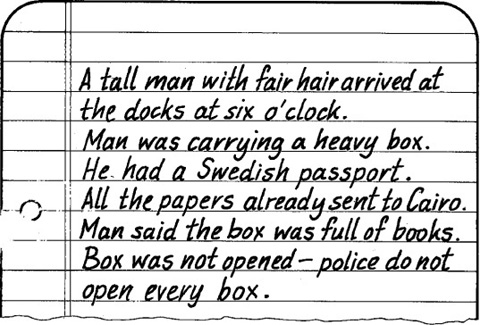 A tall man with fair hair arrived at
the docks at six o'clock.
Man was carrying a heavy box.
He had a Swedish passport.
All the papers already sent to Cairo.
Man said the box was full of books.
Box was not opened – police do not
open every box.